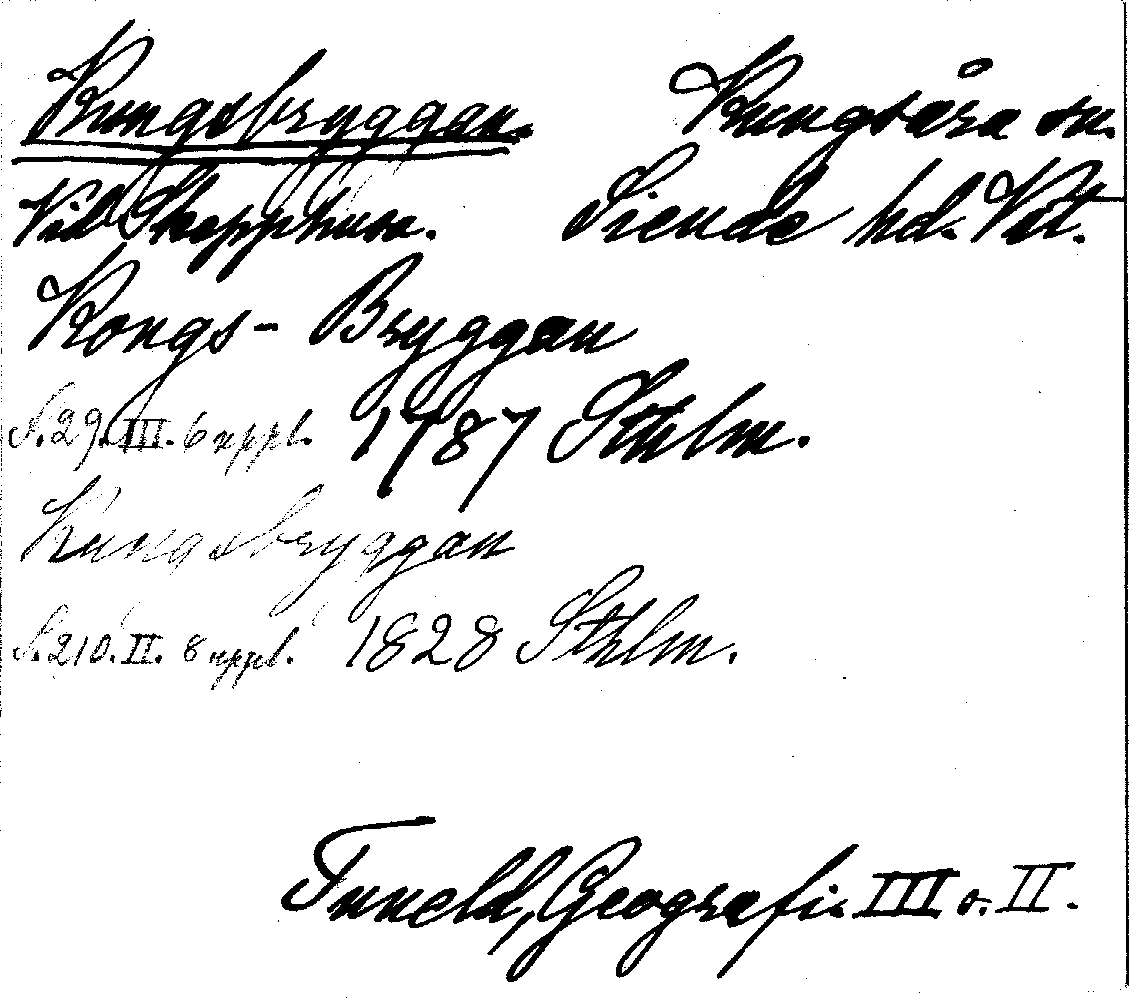 Kungsbryggan. Kungsåra sn.
Vid Skepphusa. Siende hd. Vstm.
Kongs-Bryggan
S. 29. III. 6 uppl. 1787 Sthlm.
Kungsbryggan
S. 210. II. 8 uppl. 1828 Sthlm.
Tuneld, Geografi. III o. II.